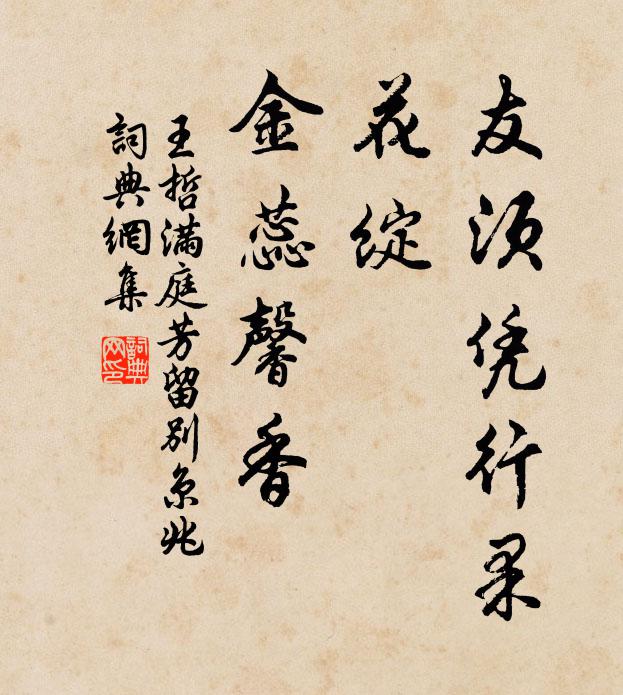 友須凭行果
花綻
金蕊馨香
王哲满庭芳留别京兆
詞典網集
詞典网印